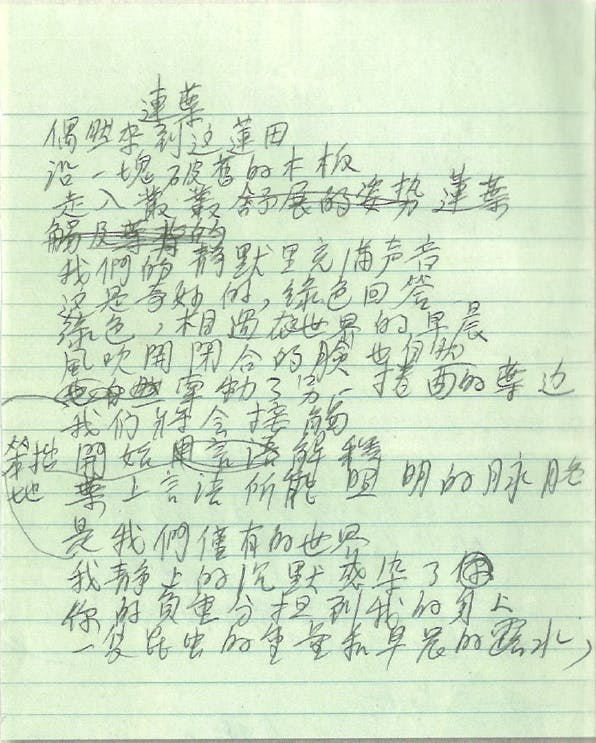 連葉
偶然来到这蓮田
沿一塊破舊的木板
走入散舒展的姿势 蓮葉
觸及
我們的静默里充满声音
这是奇妙的,綠色回答
綠色,相遇在世界的早晨
風吹開閉合的臉也自
牽動了另一捲曲的葉边
我们将会接觸
笨拙地 開始用言語解釋
葉上言语所能照明的脉胳
是我們僅有的世界
我静止的沉默感染了你
你的負重分担到我的身上
一隻昆虫的重量和早晨的露水,